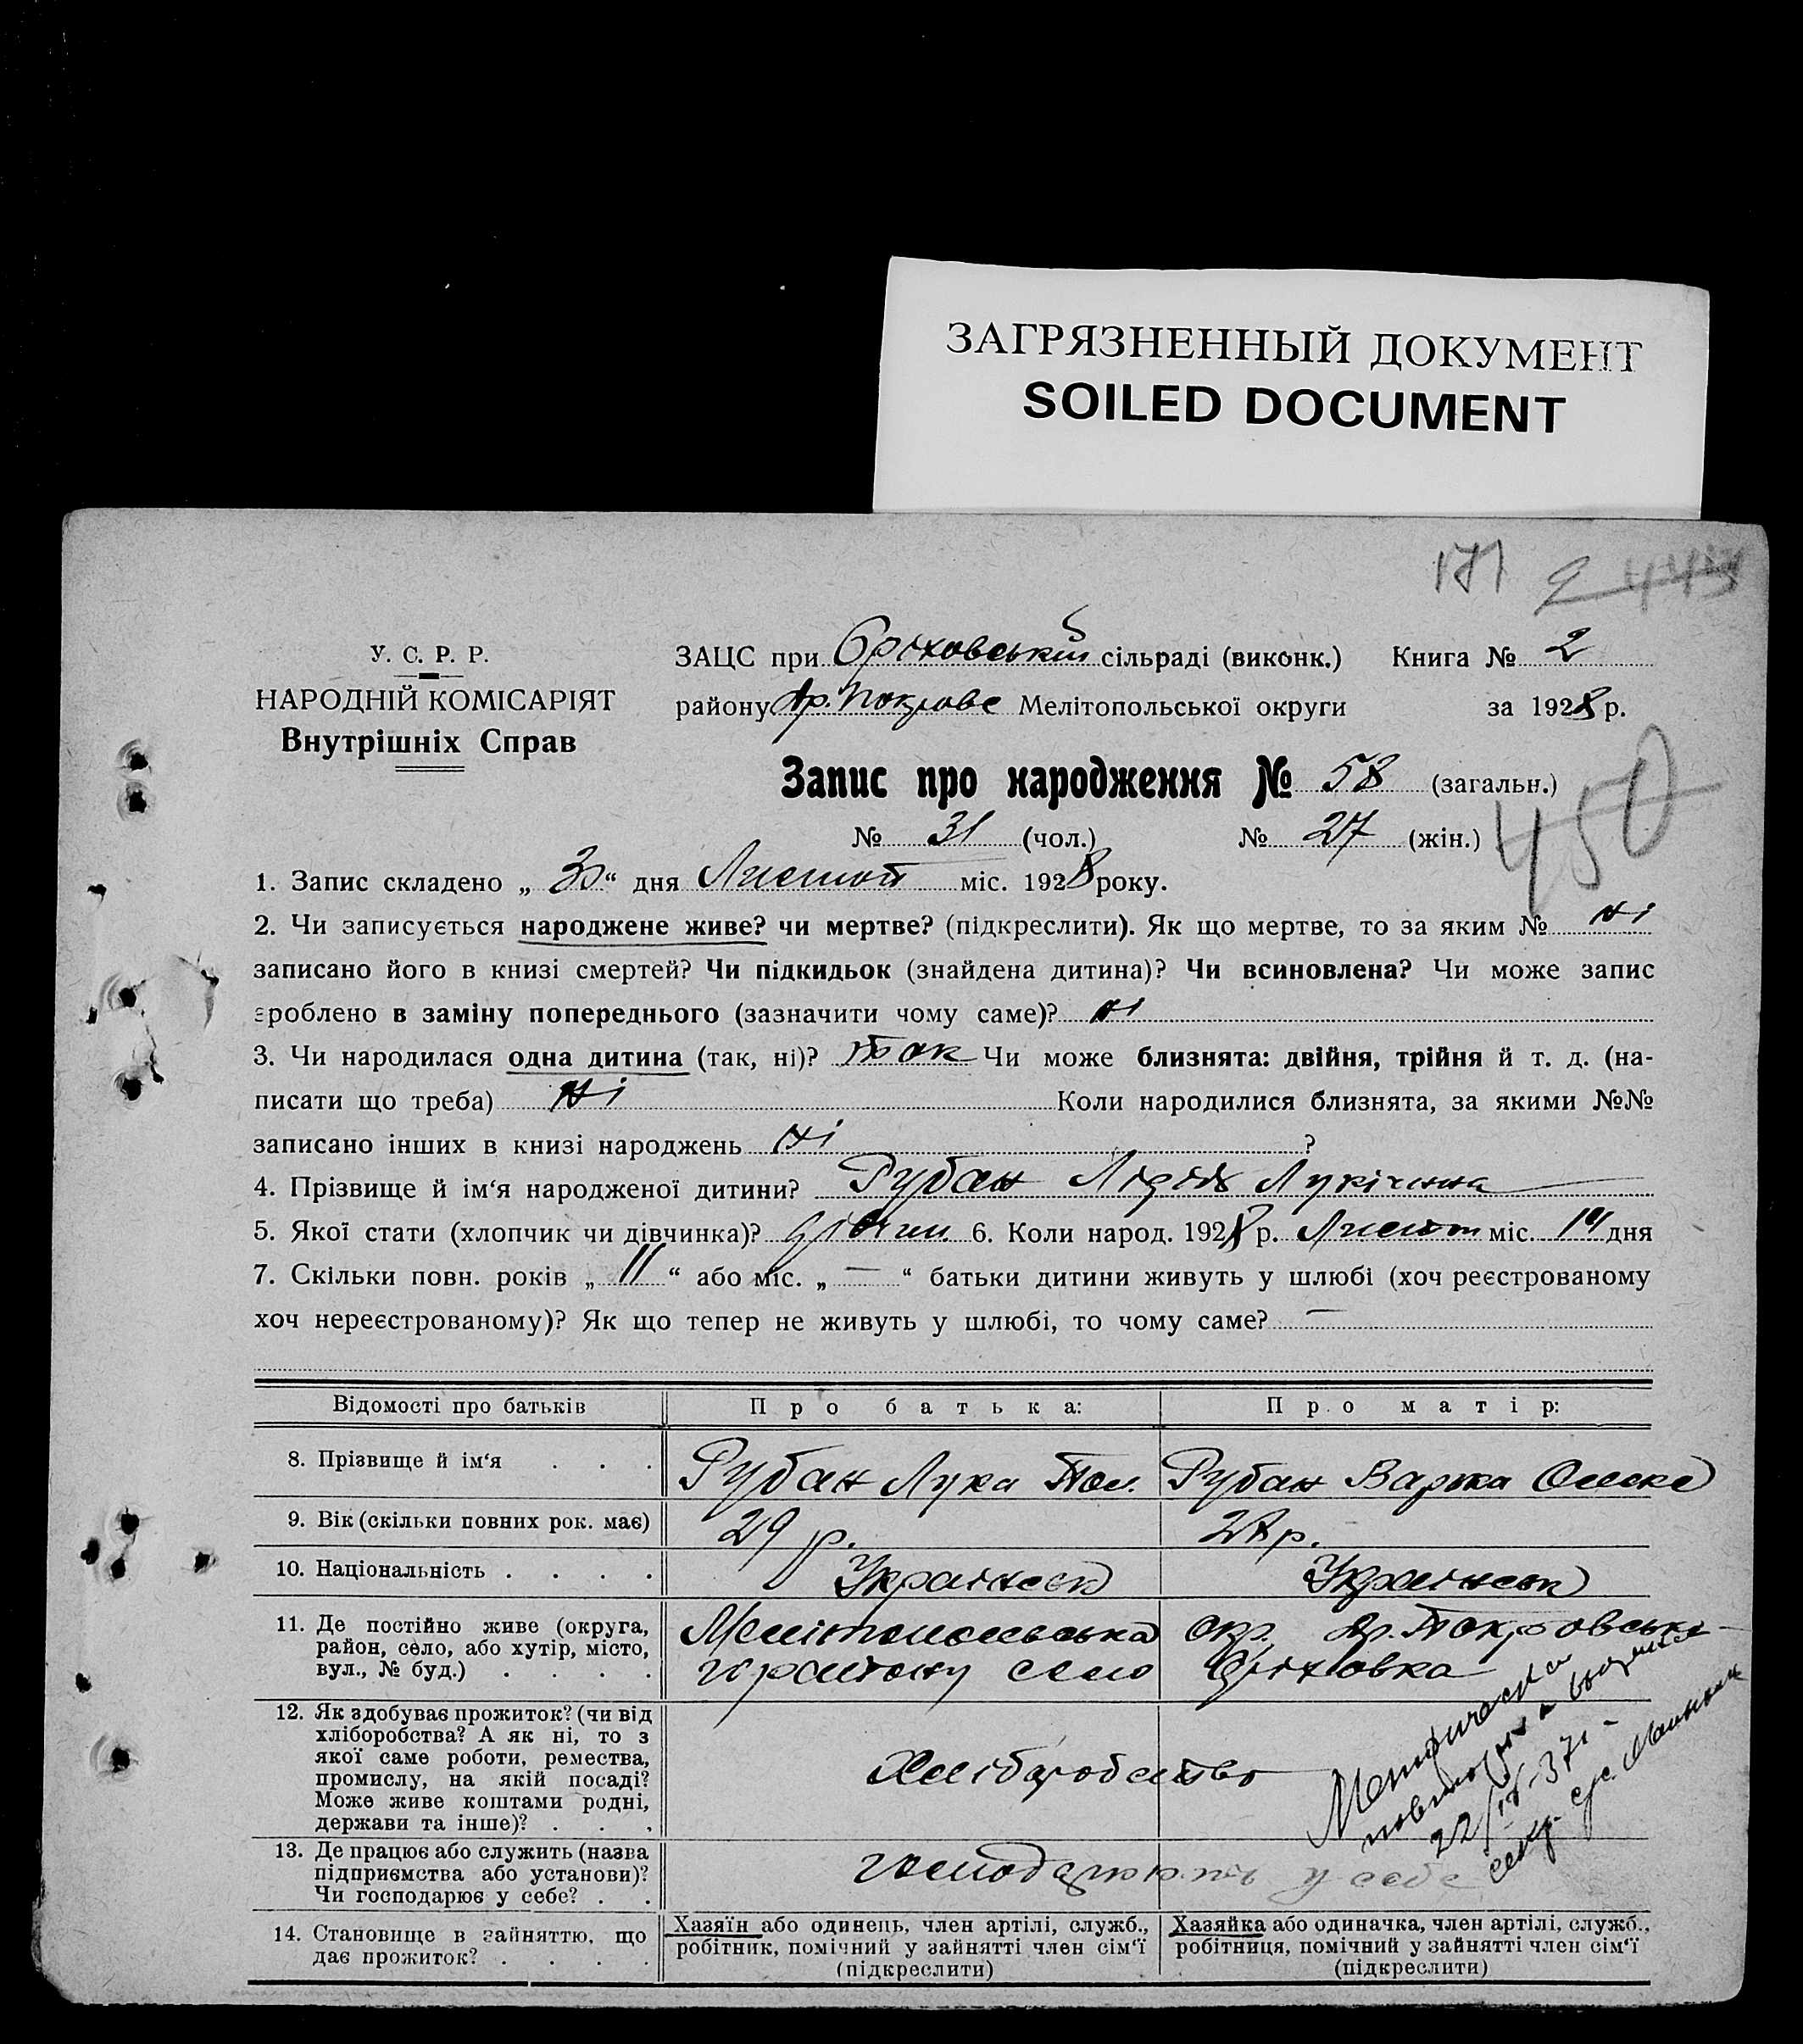 ЗАГРЯЗНЕННЫЙ ДОКУМЕНТ
SOILED DOCUMENT
171 2 443
У. С. Р. Р.
НАРОДНІЙ КОМІСАРІЯТ
Внутрішніх Справ
ЗАЦС при Оріховській сільраді (виконк.) Книга № 2
району Мелітопольської округи за 1928 р.
Запис про народження № 58 (загальн.)
№ 31 (чол.) № 27 (жін.)
450
1. Запис складено „ 30 “ дня Листоп міс. 1928 року.
2. Чи записується народжене живе? чи мертве? (підкреслити). Як що мертве, то за яким № ні
записано його в книзі смертей? Чи підкидьок (знайдена дитина)? Чи всиновлена? Чи може запис
зроблено в заміну попереднього (зазначити чому саме)? ні
3. Чи народилася одна дитина (так, ні)? так Чи може близнята: двійня, трійня й т. д. (на-
писати що треба) ні Коли народилися близнята, за якими №№
записано інших в книзі народжень ні ?
4. Прізвище й ім‘я народженої дитини? Рубан Лідія Лукічина
5. Якої стати (хлопчик чи дівчинка)? дівчин. 6. Коли народ. 1928 р. Листоп міс. дня
7. Скільки повн. років „ 11 “ або міс. „ — “ батьки дитини живуть у шлюбі (хоч реєстрованому
хоч нереєстрованому)? Як що тепер не живуть у шлюбі, то чому саме? —
Відомості про батьків Про батька: Про матір:
8. Прізвище й ім‘я . . . Рубан Лука Рубан Варка
9. Вік (скільки повних рок. має) 29 р. р.
10. Національність . . . . Українськ Українськ
11. Де постійно живе (округа,
район, село, або хутір, місто,
вул., № буд.) . . . .
Мелітопольська окр. Покровськ-
району село Оріховка
12. Як здобуває прожиток? (чи від
хліборобства? А як ні, то з
якої саме роботи, ремества,
промислу, на якій посаді?
Може живе коштами родні,
держави та інше)? . . .
Хліборобство
Метрическа
22/ 37
секр.
13. Де працює або служить (назва
підприємства або установи)?
Чи господарює у себе? . .
господарюють у себе
14. Становище в зайняттю, що
дає прожиток? . . . .
Хазяїн або одинець, член артілі, служб.,
робітник, помічний у зайнятті член сім‘ї
(підкреслити)
Хазяйка або одиначка, член артілі, служб.,
робітниця, помічний у зайнятті член сім‘ї
(підкреслити)